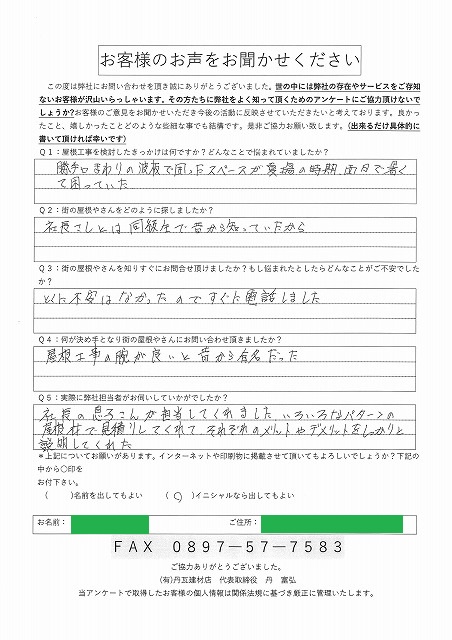 お客様のお声をお聞かせください
この度は弊社にお問い合わせを頂き誠にありがとうございました。世の中には弊社の存在やサービスをご存知
ないお客様が沢山いらっしゃいます。その方たちに弊社をよく知って頂くためのアンケートにご協力頂けないで
しょうか?お客様のご意見をお聞かせいただき今後の活動に反映させていただきたいと考えております。良かっ
たこと、嬉しかったことどのような些細な事でも結構です。是非ご協力お願い致します。(出来るだけ具体的に
書いて頂ければ幸いです)
Q1:屋根工事を検討したきっかけは何ですか?どんなことで悩まれていましたか?
勝手口まわりの波板で囲ったスペースが夏場の時期、西日で暑く
て困っていた
Q2:街の屋根やさんをどのように探しましたか?
社長さんとは同級生で昔から知っていたから
Q3:街の屋根やさんを知りすぐにお問合せ頂けましたか?もし悩まれたとしたらどんなことがご不安でした
か?
とくに不安はなかったのですぐに電話しました
Q4:何が決め手となり街の屋根やさんにお問い合わせ頂きましたか?
屋根工事の腕が良いと昔から有名だった
Q5:実際に弊社担当者がお伺いしていかがでしたか?
社長の息子さんが担当してくれました いろいろなパターンの
屋根材で見積りしてくれて それぞれのメリットやデメリットをしっかりと
説明してくれた
*上記についてお願いがあります。インターネットや印刷物に掲載させて頂いてもよろしいでしょうか?下記の
中から〇印を
お付下さい。
( )名前を出してもよい (○)イニシャルなら出してもよい
お名前: ご住所:
FAX 0897-57-7583
ご協力ありがとうございました。
(有)丹瓦建材店 代表取締役 丹 富弘
当アンケートで取得したお客様の個人情報は関係法規に基づき厳正に管理いたします。